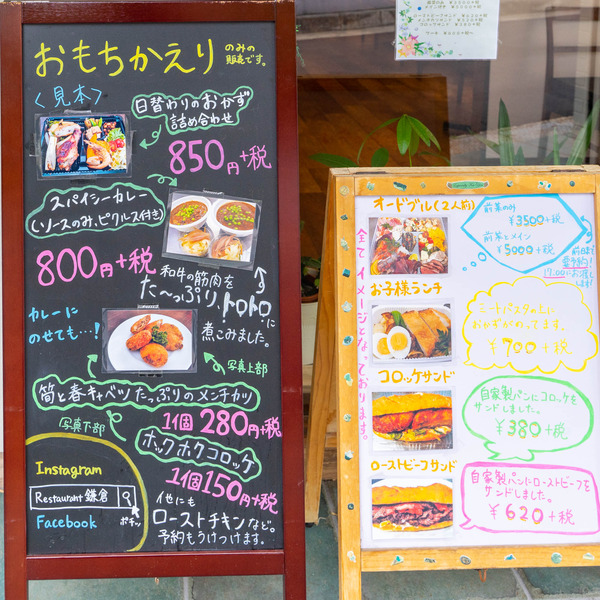 おもちかえり のみの
販売です。
〈見本〉
日替わりのおかず
詰め合わせ
850円+税
スパイシーカレー
(ソースのみ、ピクルス付き)
800円+税
和牛の筋肉を
た〜っぷり、トロトロに
煮こみました。
カレーに
のせても…!
写真上部
筒と春キャベツたっぷりのメンチカツ
1個 280円+税
写真下部
ホックホクコロッケ
1個150円+税
他にも
ローストチキンなど。
予約もうけつけます。
Instagram
Restaurant 鎌倉
Facebook ポチッ
オードブル(2人前)
前菜のみ
¥3500+税
前菜とメイン
¥5000+税
前日まで
要予約!
17:00にお渡し
します!
全てイメージとなっております。
お子様ランチ
ミートパスタの上に
おかずがのってます。
¥700+税
コロッケサンド
自家製パンにコロッケを
サンドしました。
¥380+税
ローストビーフサンド
自家製パンにローストビーフを
サンドしました。
¥620+税